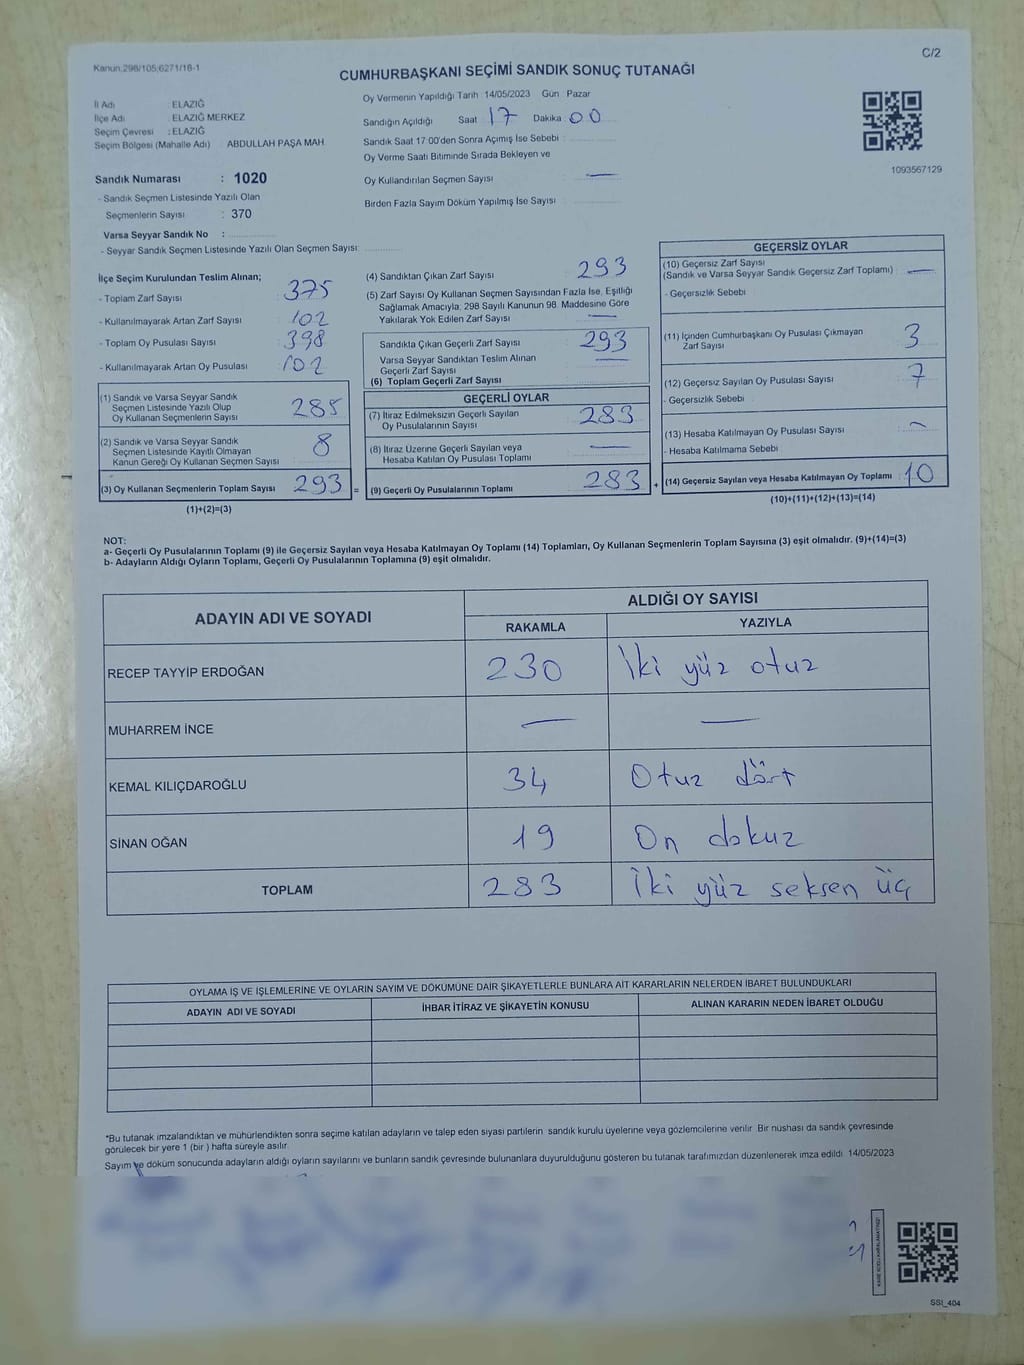 Kanun:298/105;6271/16-1
C/2
CUMHURBAŞKANI SEÇİMİ SANDIK SONUÇ TUTANAĞI
İl Adı : ELAZIĞ
İlçe Adı : ELAZIĞ MERKEZ
Seçim Çevresi : ELAZIĞ
Seçim Bölgesi (Mahalle Adı) ABDULLAH PAŞA MAH.
Sandık Numarası : 1020
- Sandık Seçmen Listesinde Yazılı Olan
Seçmenlerin Sayısı : 370
Varsa Seyyar Sandık No :
- Seyyar Sandık Seçmen Listesinde Yazılı Olan Seçmen Sayısı:
Oy Vermenin Yapıldığı Tarih 14/05/2023 Gün : Pazar
Sandığın Açıldığı Saat 17 Dakika 00
Sandık Saat 17:00'den Sonra Açımış İse Sebebi :
Oy Verme Saati Bitiminde Sırada Bekleyen ve
Oy Kullandırılan Seçmen Sayısı —
Birden Fazla Sayım Döküm Yapılmış İse Sayısı
1093567129
İlçe Seçim Kurulundan Teslim Alınan;
- Toplam Zarf Sayısı 375
- Kullanılmayarak Artan Zarf Sayısı 102
- Toplam Oy Pusulası Sayısı 398
- Kullanılmayarak Artan Oy Pusulası 102
(1) Sandık ve Varsa Seyyar Sandık
Seçmen Listesinde Yazılı Olup
Oy Kullanan Seçmenlerin Sayısı 285
(2) Sandık ve Varsa Seyyar Sandık
Seçmen Listesinde Kayıtlı Olmayan
Kanun Gereği Oy Kullanan Seçmen Sayısı 8
(3) Oy Kullanan Seçmenlerin Toplam Sayısı 293 =
(1)+(2)=(3)
(4) Sandıktan Çıkan Zarf Sayısı 293
(5) Zarf Sayısı Oy Kullanan Seçmen Sayısından Fazla İse, Eşitliği
Sağlamak Amacıyla, 298 Sayılı Kanunun 98. Maddesine Göre
Yakılarak Yok Edilen Zarf Sayısı —
Sandıkta Çıkan Geçerli Zarf Sayısı 293
Varsa Seyyar Sandıktan Teslim Alınan
Geçerli Zarf Sayısı —
(6) Toplam Geçerli Zarf Sayısı
GEÇERLİ OYLAR
(7) İtiraz Edilmeksizin Geçerli Sayılan
Oy Pusulalarının Sayısı 283
(8) İtiraz Üzerine Geçerli Sayılan veya
Hesaba Katılan Oy Pusulası Toplamı —
(9) Geçerli Oy Pusulalarının Toplamı 283 +
GEÇERSİZ OYLAR
(10) Geçersiz Zarf Sayısı
(Sandık ve Varsa Seyyar Sandık Geçersiz Zarf Toplamı) —
- Geçersizlik Sebebi
(11) İçinden Cumhurbaşkanı Oy Pusulası Çıkmayan
Zarf Sayısı 3
(12) Geçersiz Sayılan Oy Pusulası Sayısı 7
- Geçersizlik Sebebi
(13) Hesaba Katılmayan Oy Pusulası Sayısı —
- Hesaba Katılmama Sebebi
(14) Geçersiz Sayılan veya Hesaba Katılmayan Oy Toplamı : 10
(10)+(11)+(12)+(13)=(14)
NOT:
a- Geçerli Oy Pusulalarının Toplamı (9) ile Geçersiz Sayılan veya Hesaba Katılmayan Oy Toplamı (14) Toplamları, Oy Kullanan Seçmenlerin Toplam Sayısına (3) eşit olmalıdır. (9)+(14)=(3)
b- Adayların Aldığı Oyların Toplamı, Geçerli Oy Pusulalarının Toplamına (9) eşit olmalıdır.
ADAYIN ADI VE SOYADI ALDIĞI OY SAYISI
RAKAMLA YAZIYLA
RECEP TAYYİP ERDOĞAN 230 İki yüz otuz
MUHARREM İNCE — —
KEMAL KILIÇDAROĞLU 34 Otuz dört
SİNAN OĞAN 19 On dokuz
TOPLAM 283 İki yüz seksen üç
OYLAMA İŞ VE İŞLEMLERİNE VE OYLARIN SAYIM VE DÖKÜMÜNE DAİR ŞİKAYETLERLE BUNLARA AİT KARARLARIN NELERDEN İBARET BULUNDUKLARI
ADAYIN ADI VE SOYADI İHBAR İTİRAZ VE ŞİKAYETİN KONUSU ALINAN KARARIN NEDEN İBARET OLDUĞU
*Bu tutanak imzalandıktan ve mühürlendikten sonra seçime katılan adayların ve talep eden siyasi partilerin sandık kurulu üyelerine veya gözlemcilerine verilir. Bir nüshası da sandık çevresinde
görülecek bir yere 1 (bir ) hafta süreyle asılır.
Sayım ve döküm sonucunda adayların aldığı oyların sayılarını ve bunların sandık çevresinde bulunanlara duyurulduğunu gösteren bu tutanak tarafımızdan düzenlenerek imza edildi. 14/05/2023
SSI_404